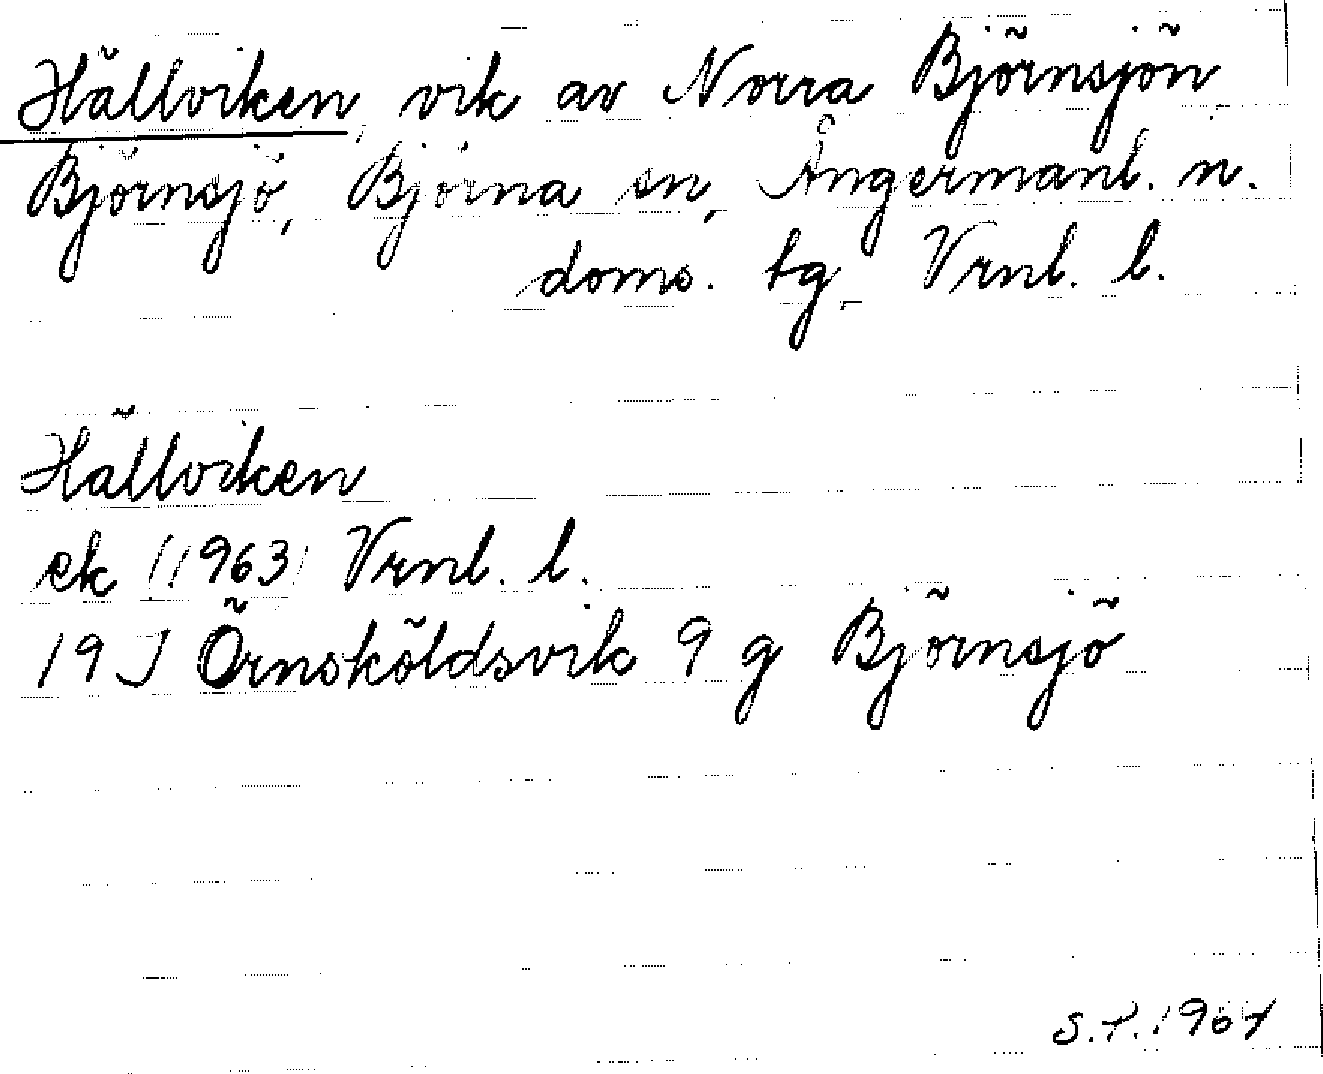 Hällviken, vik av Norra Björnsjön,
Björnsjö, Björna sn, Ångermanl. n.
doms. tg, Vrnl. l.
Hällviken
ek (1963) Vrnl. l.
19 J Örnsköldsvik 9 g Björnsjö
S.T. 1964